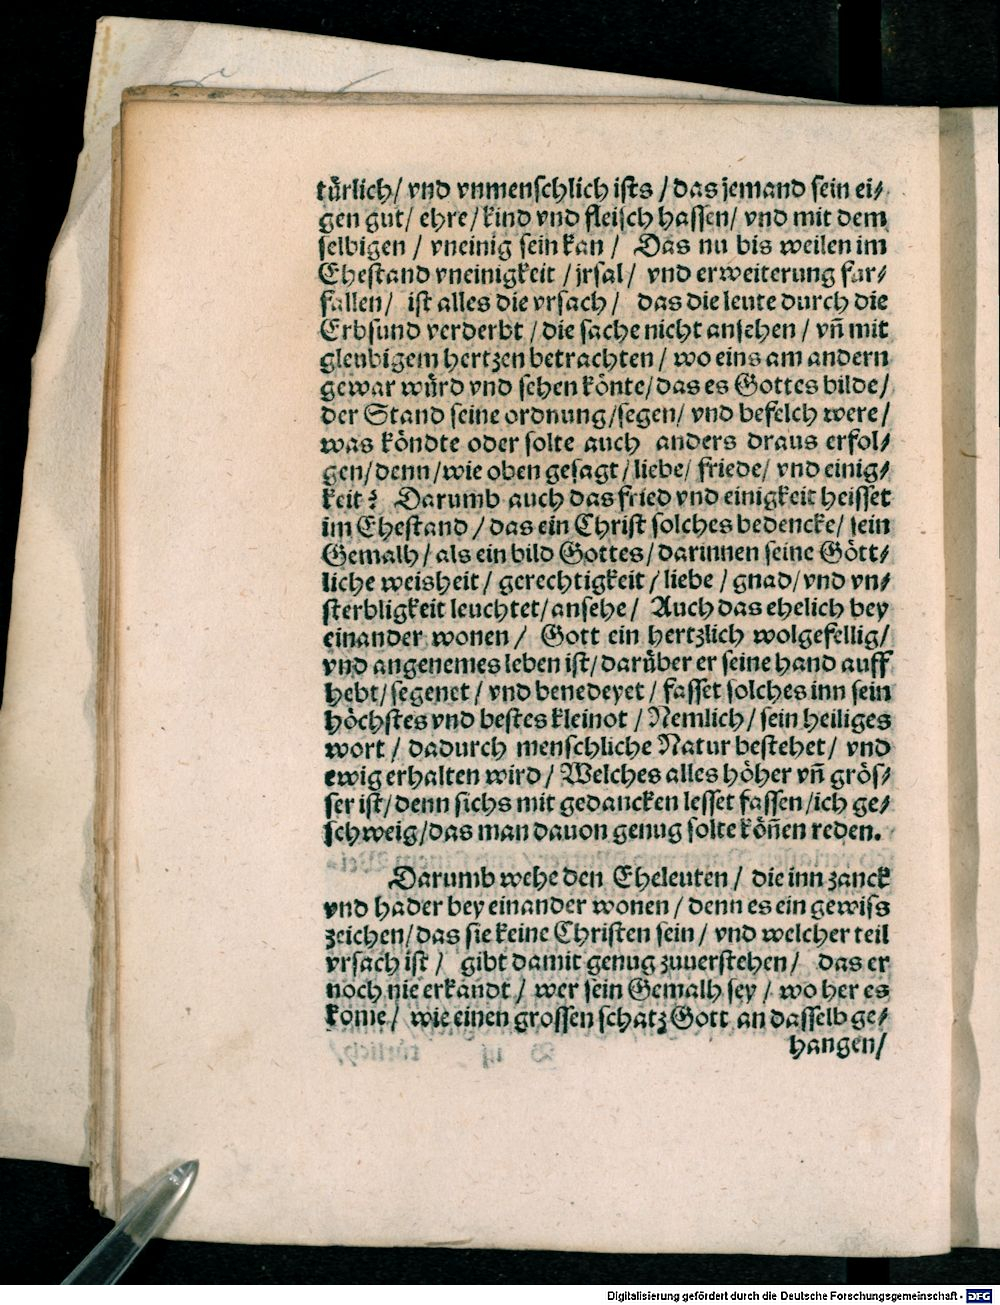 türlich/ vnd vnmenschlich ists / das jemand sein ei-
gen gut/ ehre/ kind vnd fleisch hassen/ vnd mit dem
selbigen / vneinig sein kan / Das nu bis weilen im
Ehestand vneinigkeit / jrsal/ vnd erweiterung fur-
fallen/ ist alles die vrsach / das die leute durch die
Erbsund verderbt / die sache nicht ansehen / vn̄ mit
gleubigem hertzen betrachten / wo eins am andern
gewar würd vnd sehen könte/ das es Gottes bilde/
der Stand seine ordnung/segen/ vnd befelch were/
was köndte oder solte auch anders draus erfol-
gen/ denn/ wie oben gesagt / liebe/ friede/ vnd einig-
keit? Darumb auch das fried vnd einigkeit heisset
im Ehestand / das ein Christ solches bedencke/ sein
Gemalh/ als ein bild Gottes/ darinnen seine Gött-
liche weisheit/ gerechtigkeit / liebe / gnad/ vnd vn-
sterbligkeit leuchtet/ ansehe/ Auch das ehelich bey
einander wonen / Gott ein hertzlich wolgefellig/
vnd angenemes leben ist/ darüber er seine hand auff
hebt/ segenet / vnd benedeyet / fasset solches inn sein
höchstes vnd bestes kleinot / Nemlich/ sein heiliges
wort / dadurch menschliche Natur bestehet/ vnd
ewig erhalten wird / Welches alles höher vn̄ grös-
ser ist/ denn sichs mit gedancken lesset fassen /ich ge-
schweig/das man dauon genug solte kön̄en reden.
Darumb wehe den Eheleuten / die inn zanck
vnd hader bey einander wonen / denn es ein gewiss
zeichen/ das sie keine Christen sein / vnd welcher teil
vrsach ist / gibt damit genug zuuerstehen / das er
noch nie erkandt / wer sein Gemalh sey / wo her es
kome/ wie einen grossen schatz Gott an dasselb ge-
hangen/
Digitalisierung gefördert durch die Deutsche Forschungsgemeinschaft - DFG